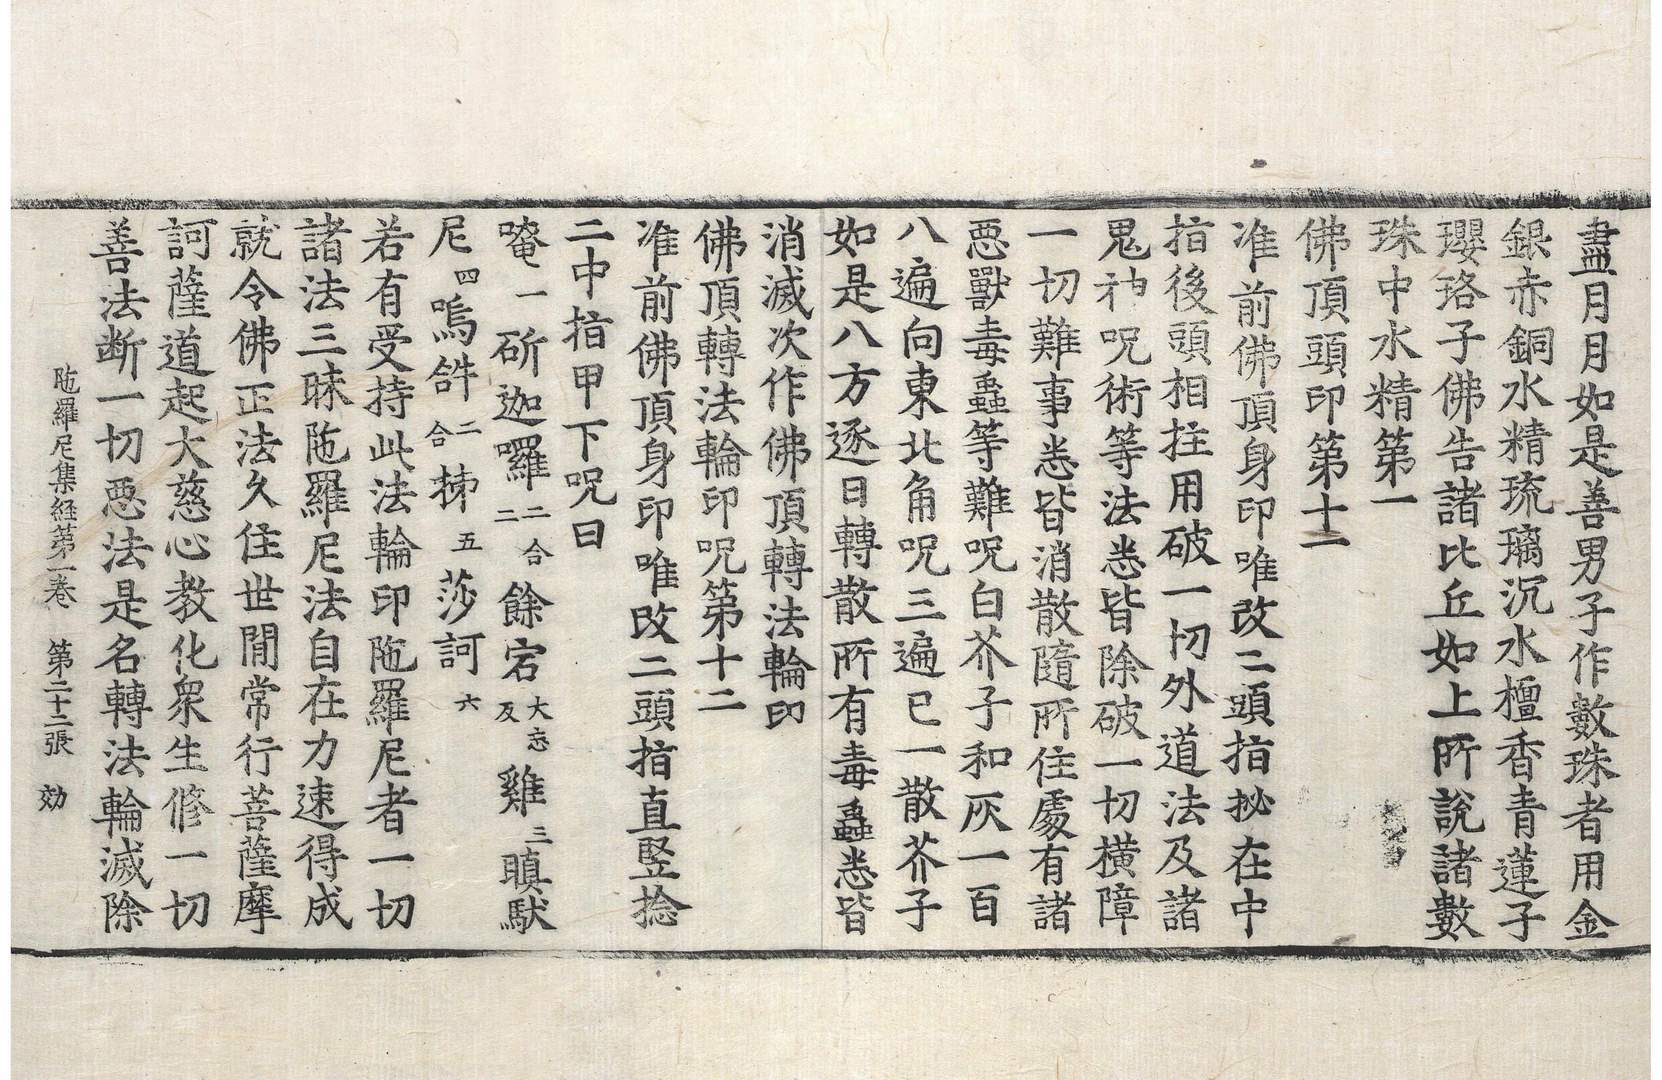 盡月月月如是善男子作數珠者用金
銀赤銅水精琉璃沉水檀香青蓮子
瓔珞子佛告諸比丘如上所說諸數
珠中水精第一
佛頂頭印第十一
准前佛頂身印唯改二頭指拟在中
指後頭相拄用破一切外道法及諸
鬼神呪術等法悉皆除破一切橫障
一切難事悉皆消散隨所住處有諸
惡獸毒蟲等難呪白芥子和灰一百
八遍向東北角呪三遍已一散芥子
如是八方逐日轉散所有毒蟲悉皆
消滅次作佛頂轉法輪印
佛頂轉法輪印呪第十二
准前佛頂身印唯改二頭指直竪捻
二中指甲下呪曰
唵一斫迦囉二合二餘宕大忘反雞三瞋馱
尼四嗚𤙖二合㧊五莎訶六
若有受持此法輪印陁羅尼者一切
諸法三昧陁羅尼法自在力速得成
就令佛正法久住世間常行菩薩摩
訶薩道起大慈心教化衆生修一切
善法断一切惡法是名轉法輪滅除
陁羅尼集経第一卷 第二十二張 効